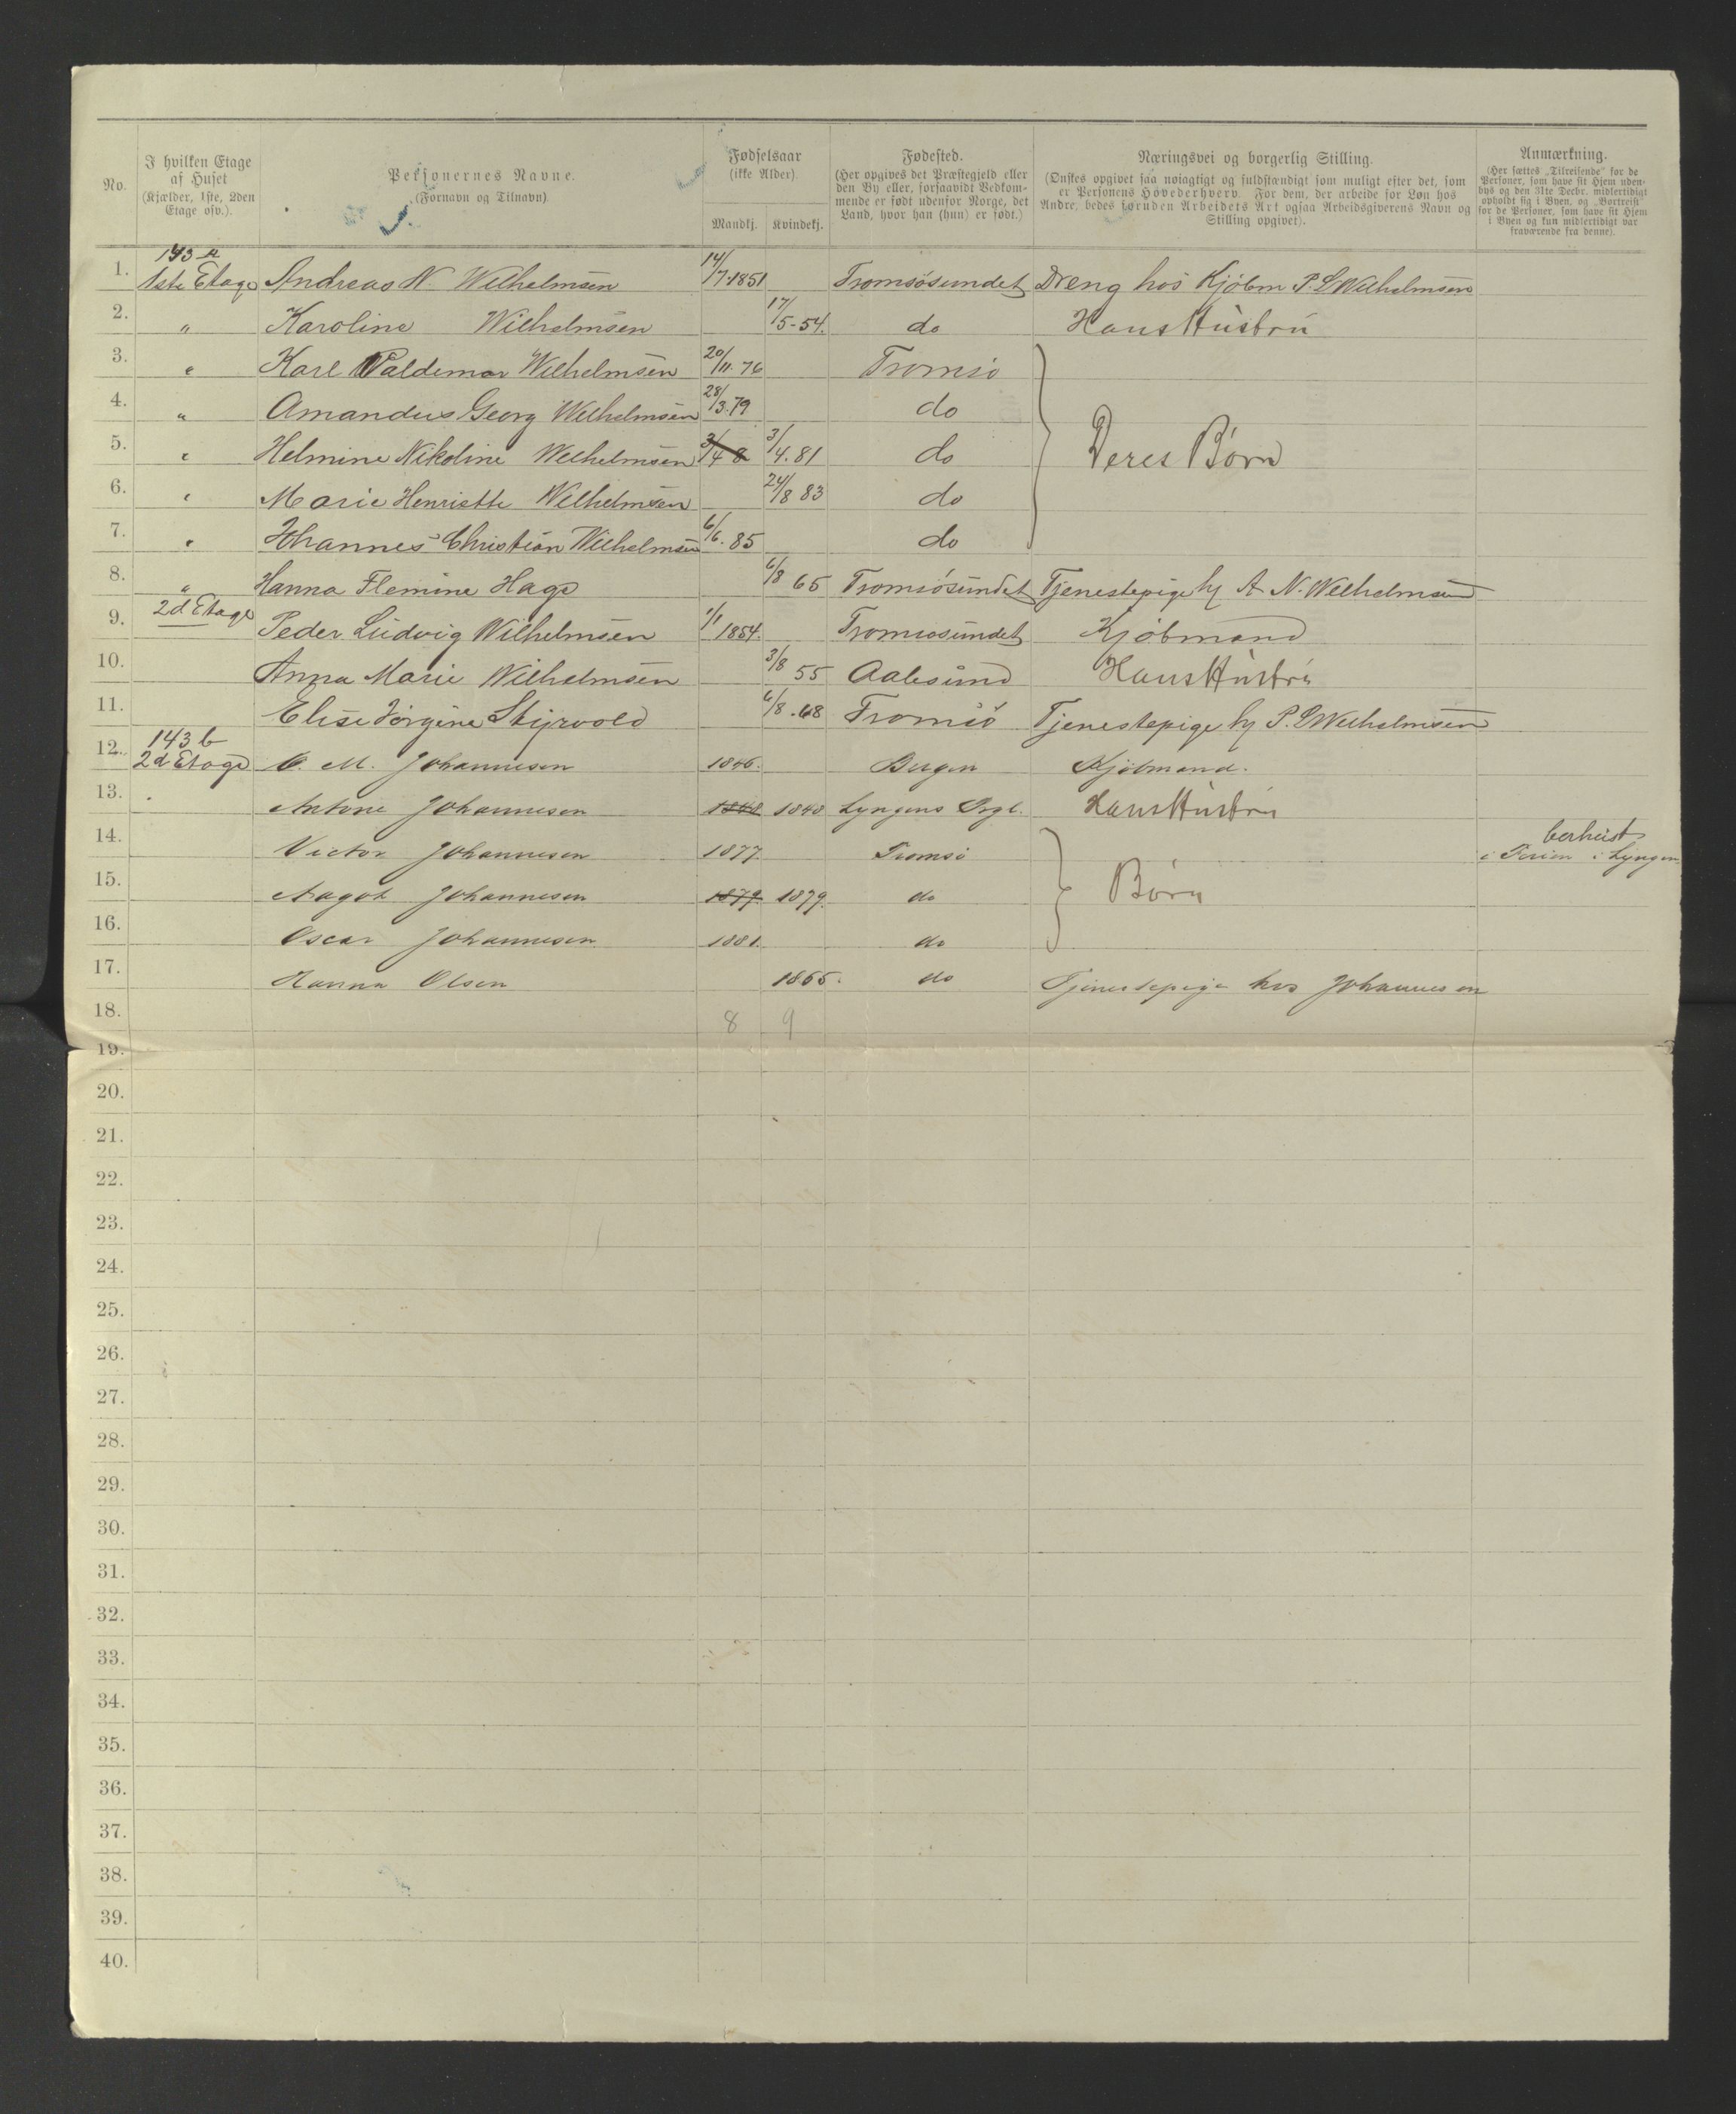 No.
I hvilken Etage af Huset (Kjælder, 1ste, 2den Etage osv.).
Personernes Navne. (Fornavn og Tilnavn).
Fødselsaar (ikke Alder).
Mandkj. Kvindekj.
Fødested. (Her opgives det Præstegjeld eller den By eller, forsaavidt Vedkommende er født udenfor Norge, det Land, hvor han (hun) er født.)
Næringsvei og borgerlig Stilling. (Ønskes opgivet saa nøiagtigt og fuldstændigt som muligt efter det, som er Personens Hovederhverv. For dem, der arbeide for Løn hos Andre, bedes foruden Arbeidets Art ogsaa Arbeidsgiverens Navn og Stilling opgivet).
Anmærkning. (Her sættes „Tilreisende" for de Personer, som have sit Hjem udenbys og den 31te Decbr. midlertidigt opholdt sig i Byen, og „Bortreist" for de Personer, som have sit Hjem i Byen og kun midlertidigt var fraværende fra denne).
143 a
1. 1ste Etage Andreas N. Wilhelmsen 14/7-1851 Tromsøsundet Dreng hos Kjøbm P. L Wilhelmsen
2. " Karoline Wilhelmsen 17/5-54. do Hans Hustru
3. " Karl Valdemar Wilhelmsen 20/11. 76 Tromsø
4. " Amandus Georg Wilhelmsen 28/3.79 do
5. " Helmine Nikoline Wilhelmsen 3/4 8 3/4.81 do Deres Børn
6. " Marie Henriette Wilhelmsen 24/8 83 do
7. " Johannes Christian Wilhelmsen 6/6. 85 do
8. " Hanna Flemine Hage 6/8 65 Tromsøsundet Tjenestepige hj A. N. Wilhelmsen
9. 2d Etage Peder Ludvig Wilhelmsen 1/1 1854. Tromsøsundet Kjøbmand
10. Anna Marie Wilhelmsen 3/8 55 Aalesund Hans Hustru
11. Elise Jørgine 6/8.68 Tromsø Tjenestepige hj P. L Wilhelmsen
143 b
12. 2d Etage O. M. Johannesen 1846. Bergen Kjøbmand.
13. Antone Johannesen 1848 1848 Lyngens Prgl. Hans Hustru
14. Victor Johannesen 1877. Tromsø bortreist
i Ferien i Lyngen
15. Aagot Johannesen 1879. 1879. do Børn
16. Oscar Johannesen 1881. do
17. Hanna Olsen 1865. do Tjenestepige hos Johannesen
18. 8 9
19.
20.
21.
22.
23.
24.
25.
26.
27.
28.
29.
30.
31.
32.
33.
34.
35.
36.
37.
38.
39.
40.